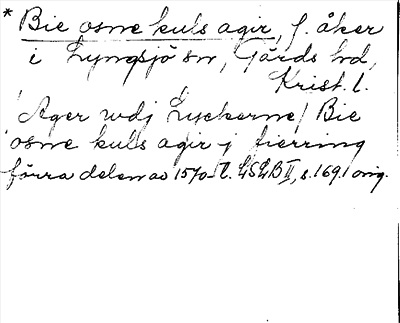 * Bie osne kuls agir, f. åker
i Lyngsjö sn, Gärds hd,
Krist. l.
Ager wdj Lyckerne / Bie
osne kuls agir j fierring
förra delen av 1570-t. LSLB II, s. 169. orig.